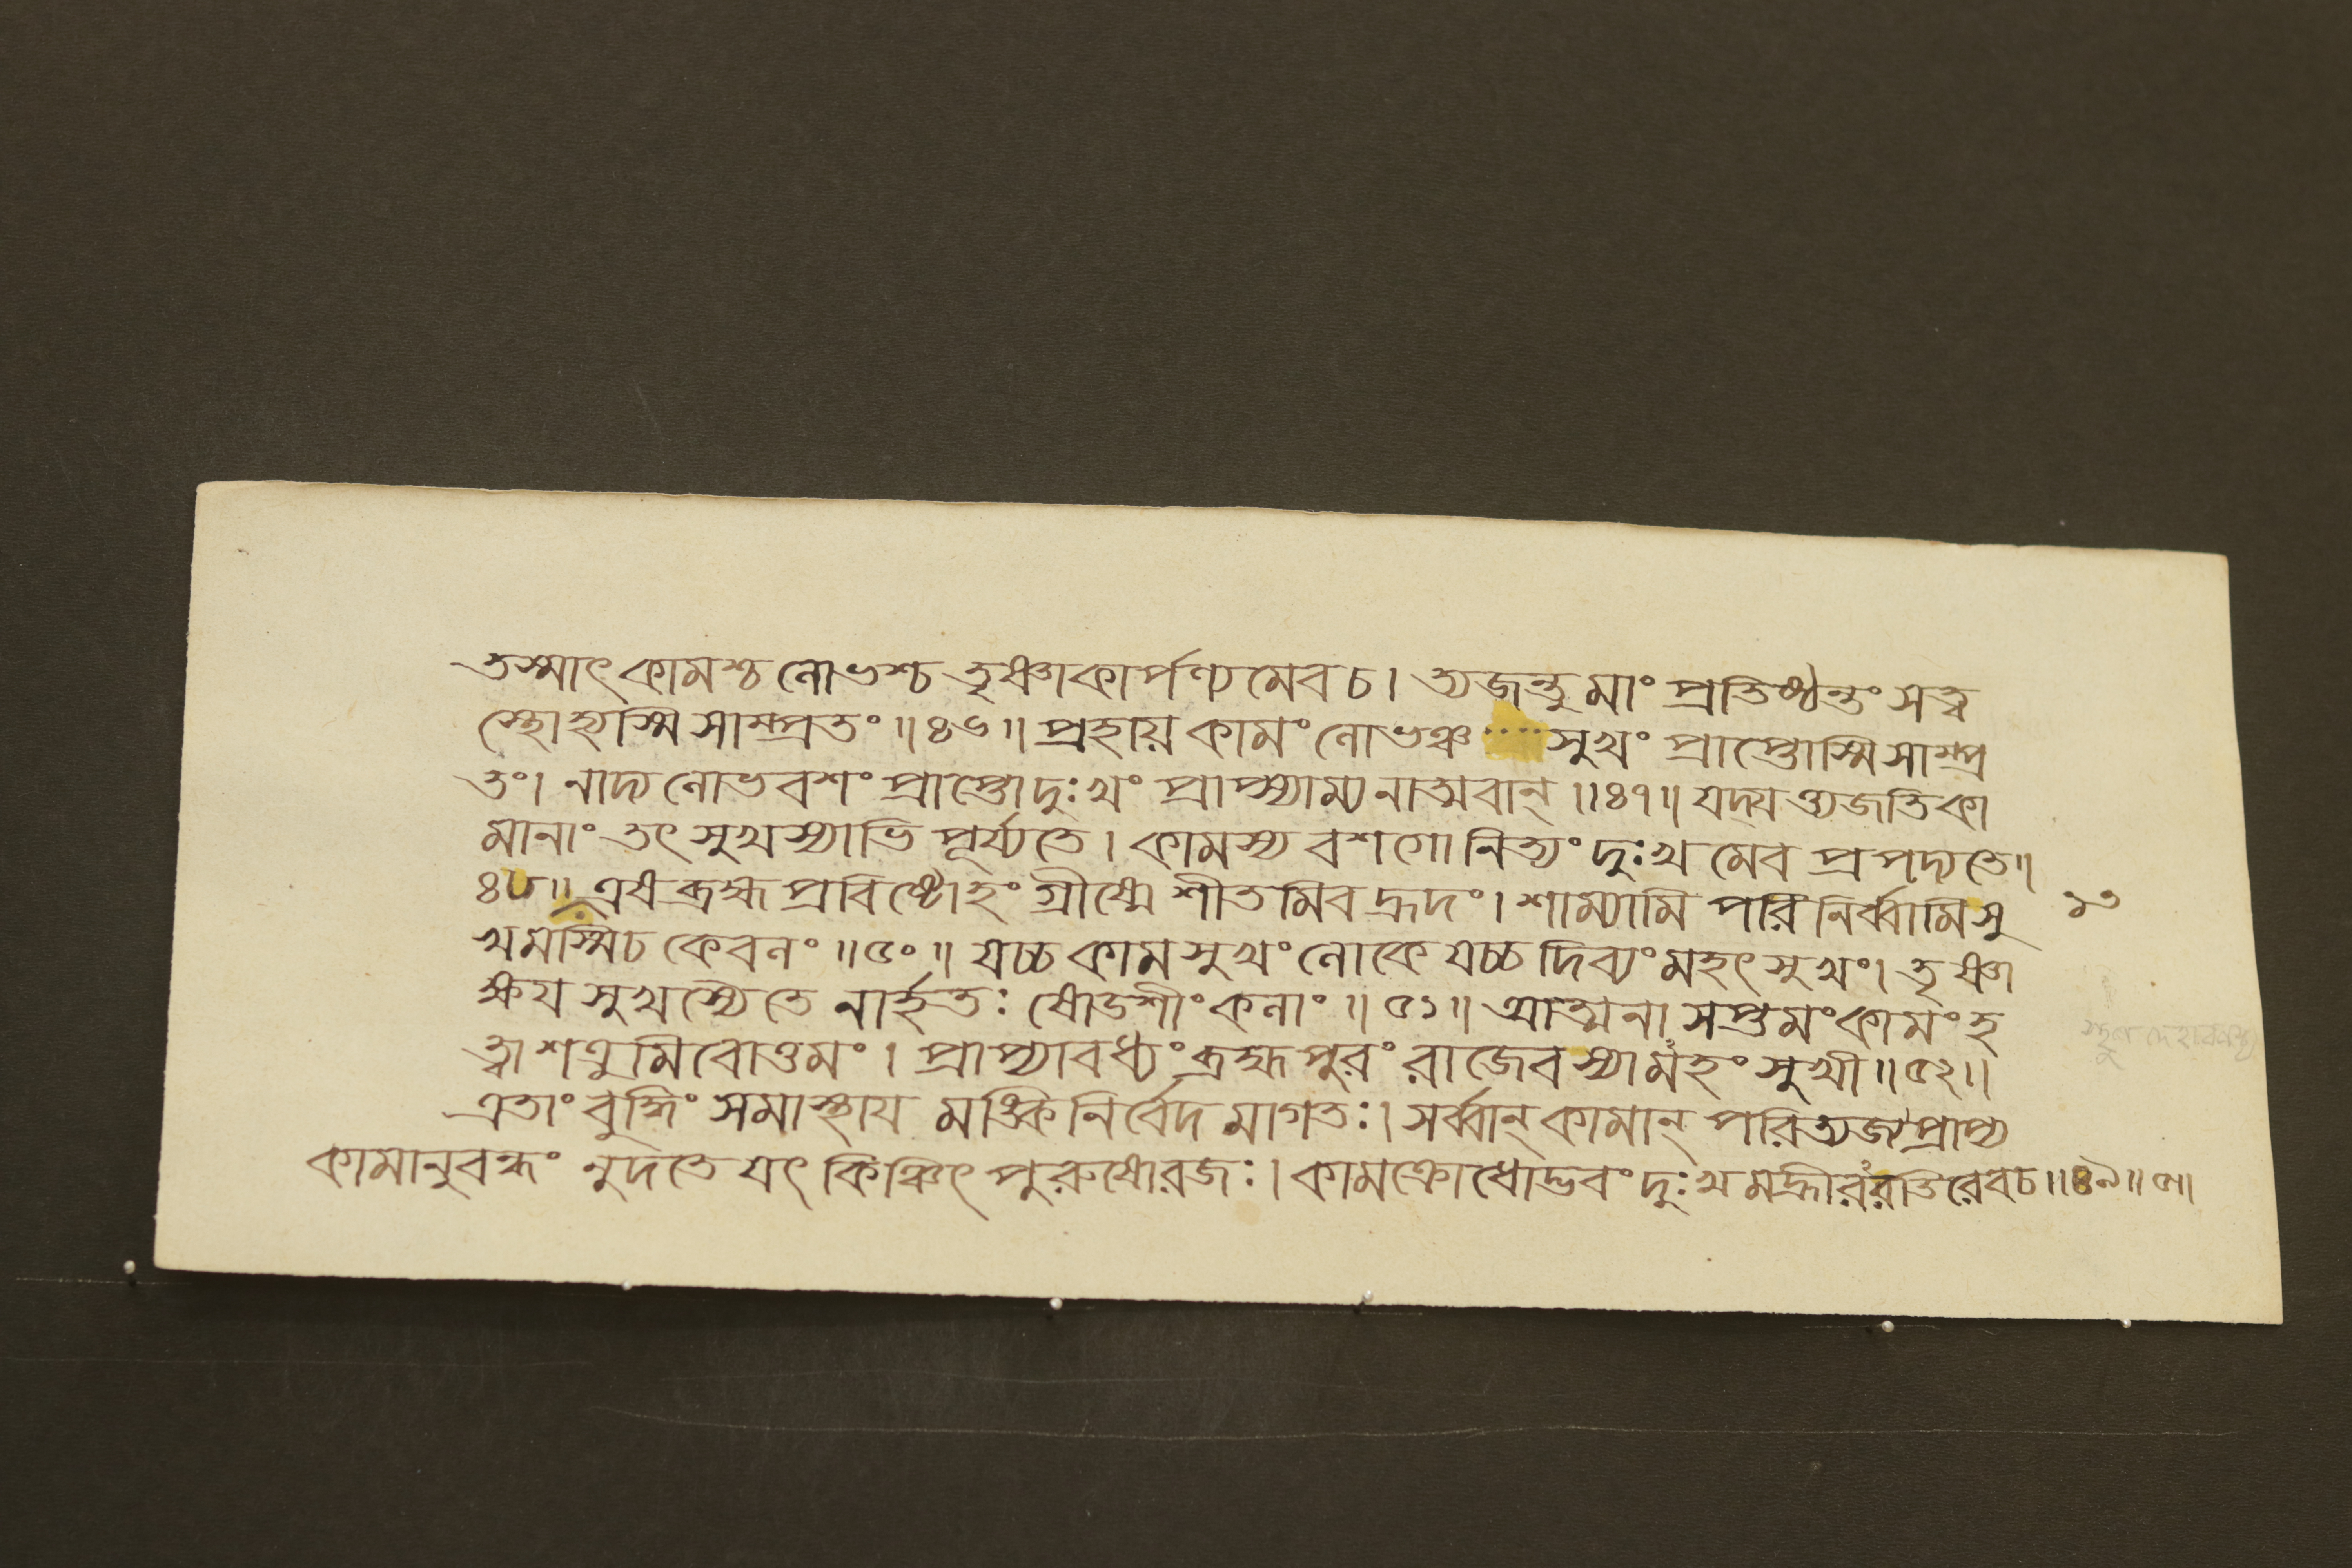 তস্মাৎ কামশ্চ লোভশ্চ তৃষ্ণাকার্পণ্যমেবচ। ত্যজন্তু মাং প্রতিষ্ঠন্তং সত্ত্ব
স্থোহ্যস্মি সাম্প্রতং॥৪৬॥ প্রহায় কামং লোভঞ্চ .... সুখং প্রাপ্তোস্মি সাম্প্র
তং। নাদ্য লোভবশং প্রাপ্তোদুঃখং প্রাপ্স্যাম্যনাত্মবান্॥৪৭॥ যদ্যত্ত্যজতি কা
মানাং তৎ সুখস্যাভি পূর্য্যতে। কামস্য বশগো নিত্যং দুঃখমেব প্রপদ্যতে॥
৪৮॥ এষ ব্রহ্ম প্রবিষ্টোহং গ্রীষ্মে শীতমিব হ্রদং। শাম্যামি পরিনির্ব্বামি সু
খমস্মি চ কেবলং॥৫০॥ যচ্চ কামসুখং লোকে যচ্চ দিব্যং মহৎ সুখং। তৃষ্ণা
ক্ষয সুখস্যৈতে নার্হতঃ ষোডশীং কলাং॥৫১॥ আত্মনা সপ্তমং কামং হ
ত্বা শত্রুমিবোত্তমং। প্রাপ্যাবধ্যং ব্রহ্মপুরং রাজেব স্যামহং সুখী॥৫২॥
এতাং বুদ্ধিং সমাস্থায মঙ্কি নির্বেদমাগতঃ। সর্ব্বান্ কামান্ পরিত্যজ্য প্রাপ্য
কামানুবন্ধং নুদতে যৎ কিঞ্চিৎ পুরুষোরজঃ। কামক্রোধোদ্ভবং দুঃখমহ্রীররতিরেবচ॥৪৯॥
১৩